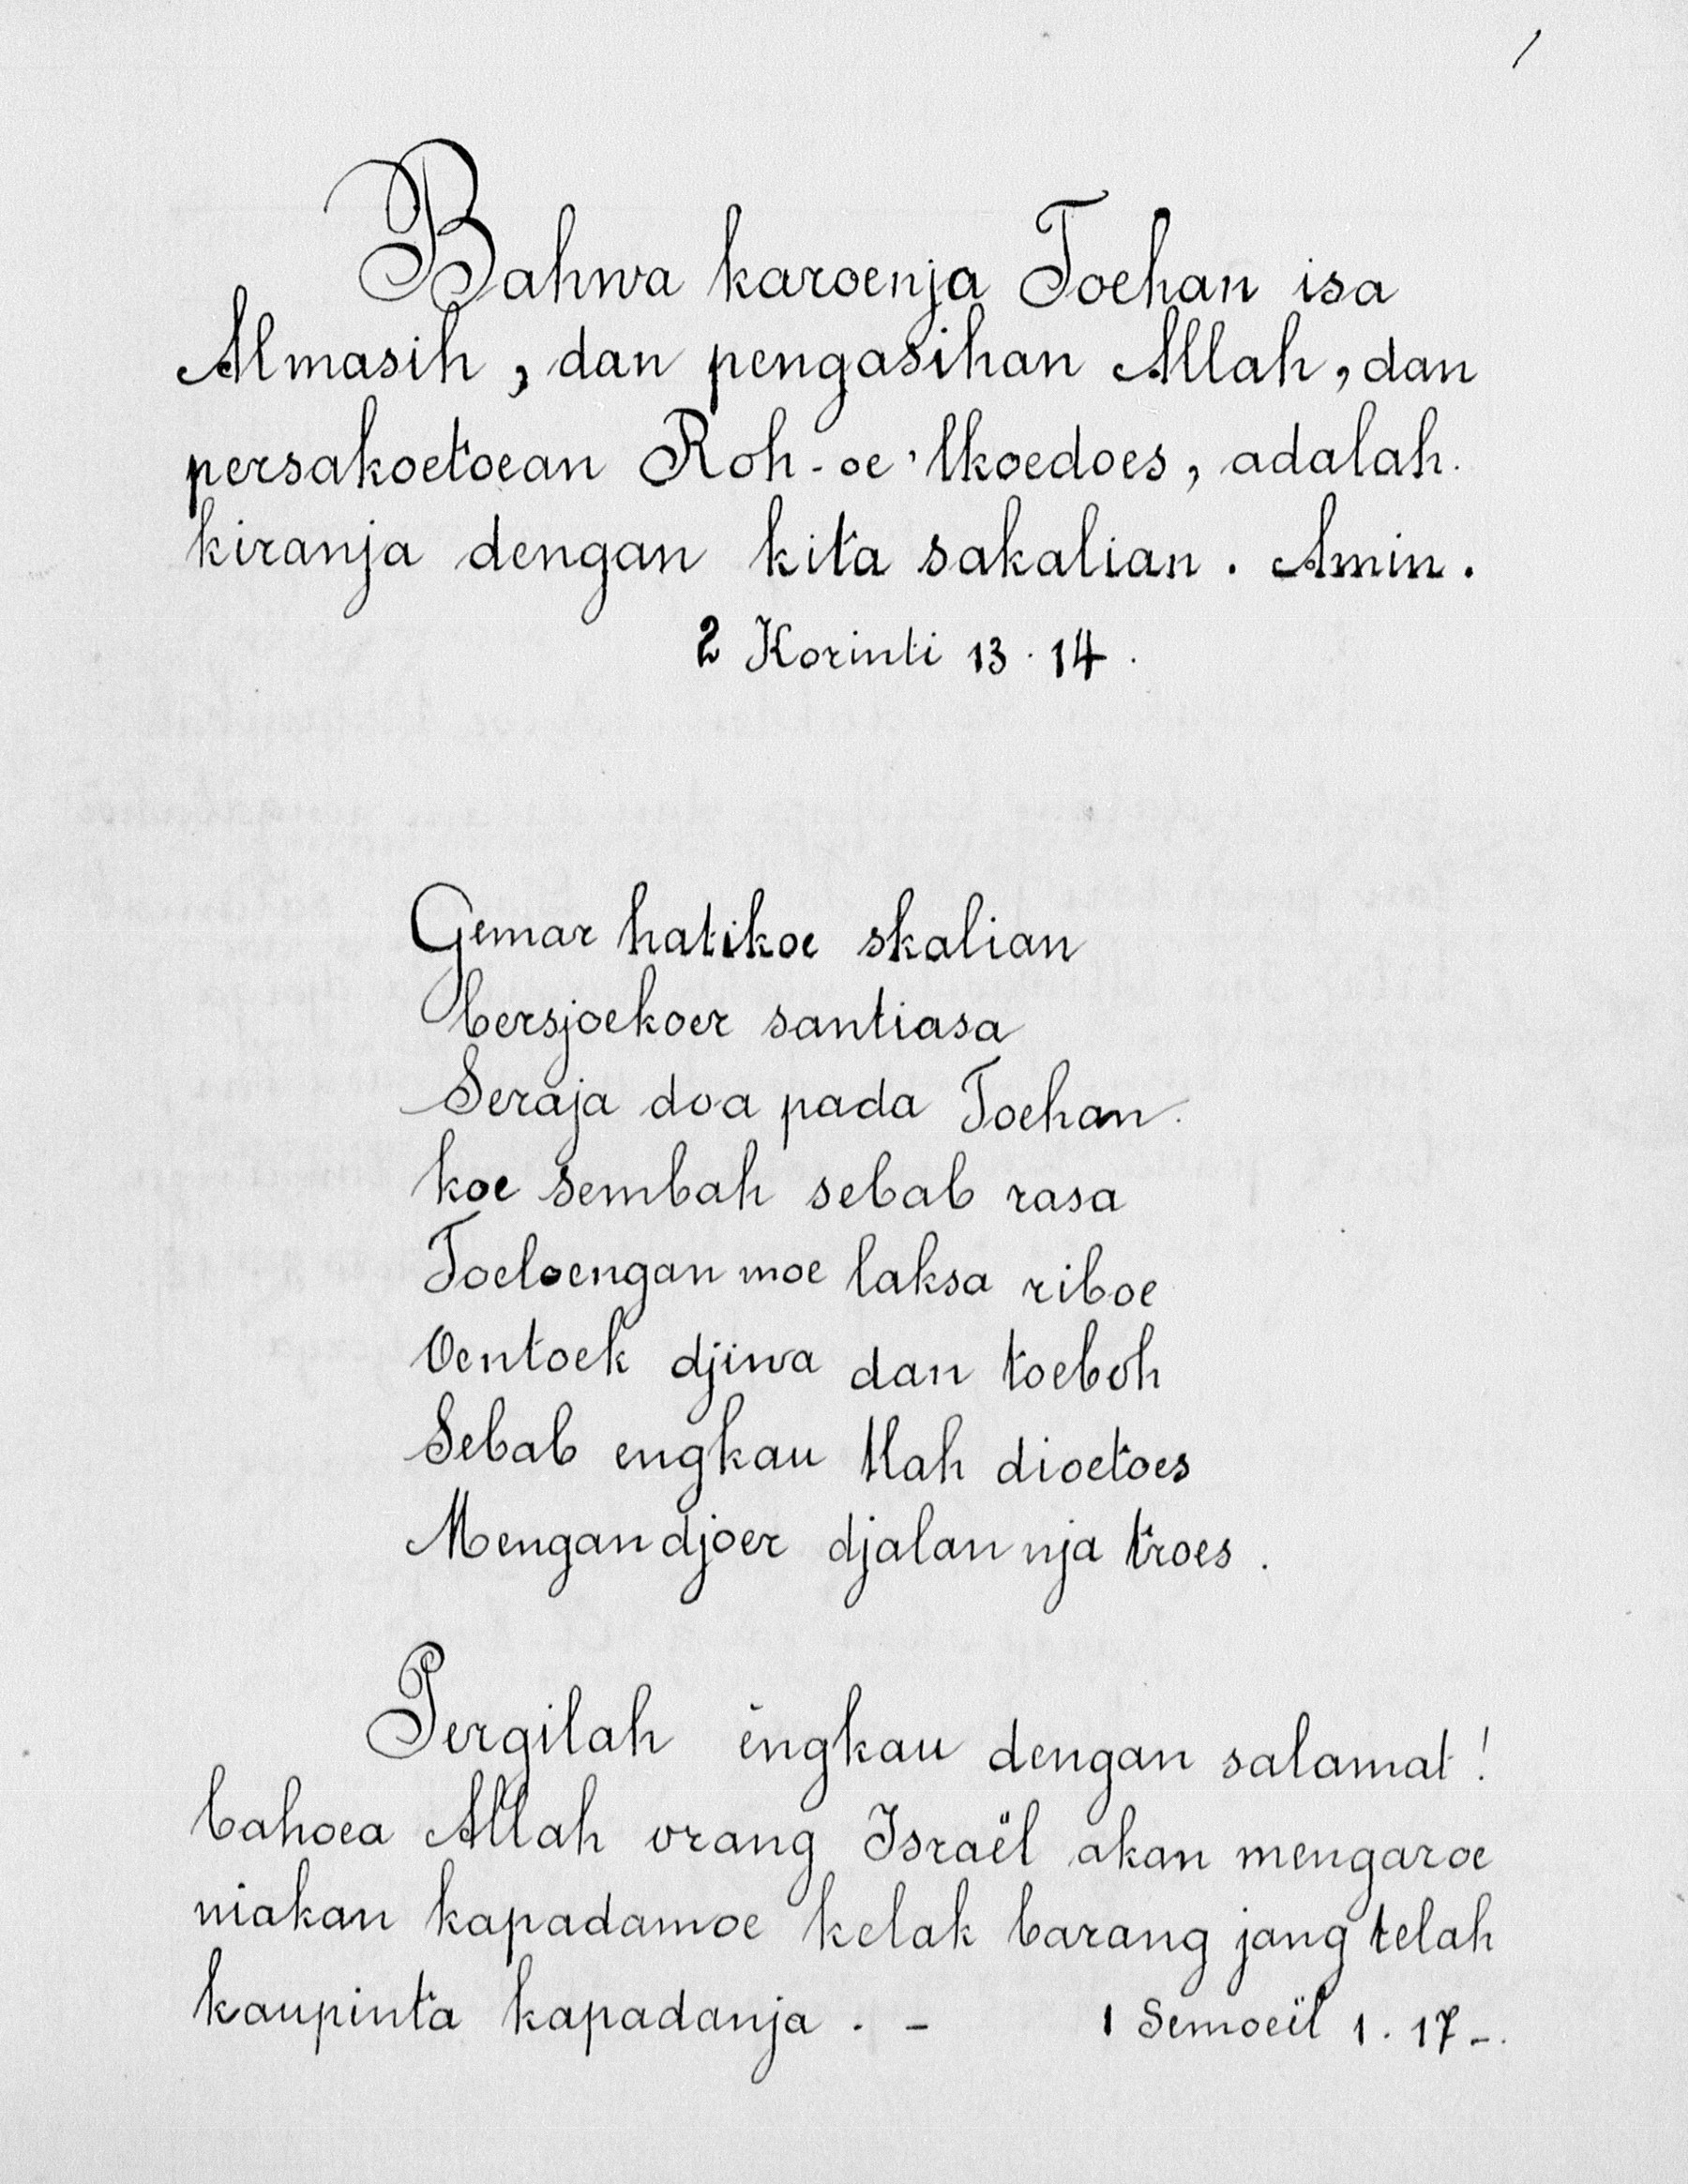 1
Bahwa karoenja Toehan isa
Almasih, dan pengasihan Allah, dan
persakoetoean Roh-oe'lkoedoes, adalah
kiranja dengan kita sakalian. Amin.
2 Korinti 13.14.
Gemar hatikoe skalian
bersjoekoer santiasa
Seraja doa pada Toehan
koe sembah sebab rasa
Toeloengan moe laksa riboe
Oentoek djiwa dan toeboh
Sebab engkau tlah dioetoes
Mengandjoer djalannja troes.
Pergilah ĕngkau dengan salamat!
bahoea Allah orang Israël akan mengaroe
niakan kapadamoe kelak barang jang telah
kaupinta kapadanja. - 1 Semoeïl 1.17-.